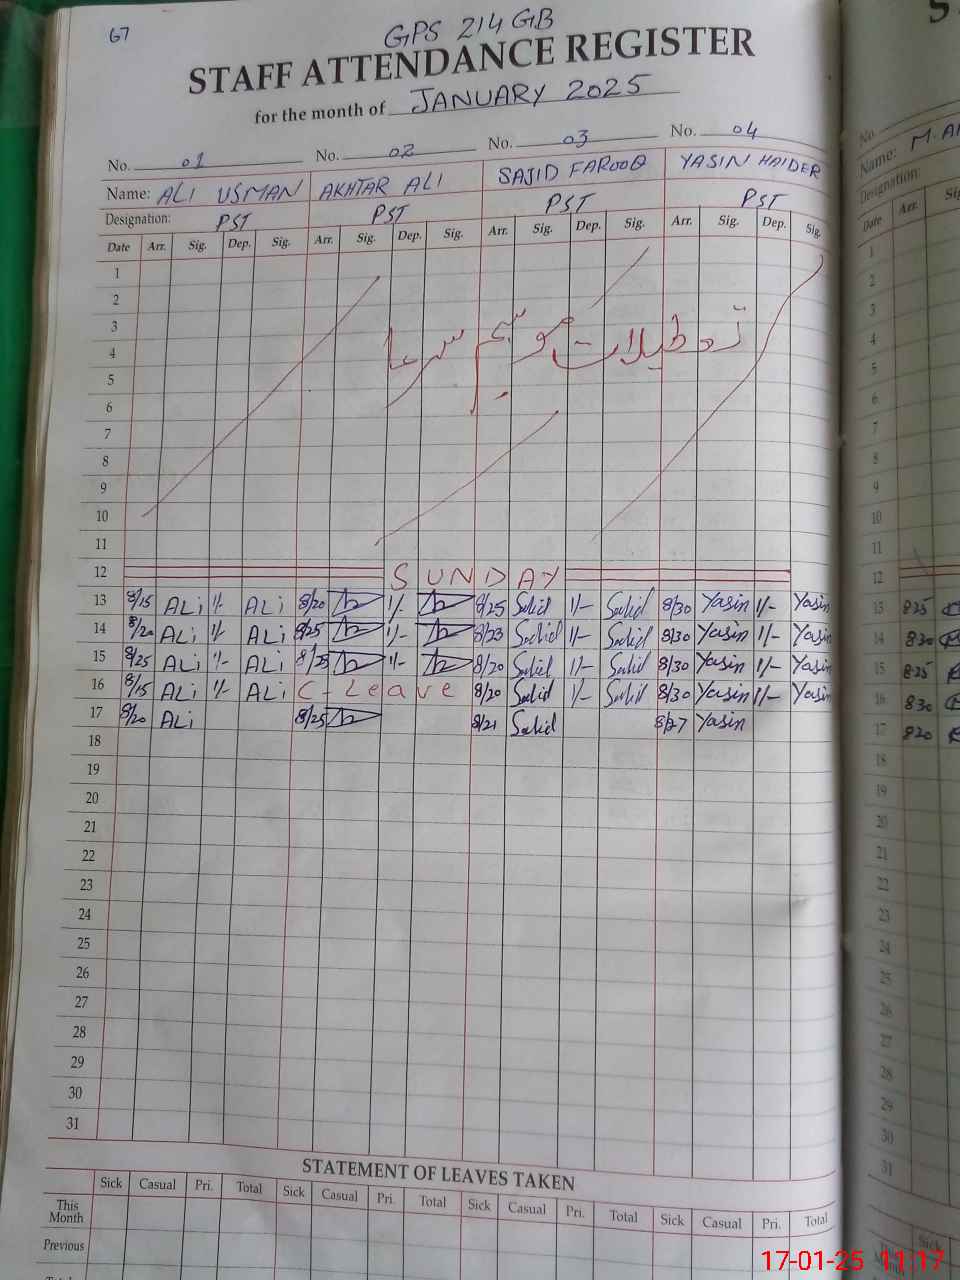 67
GPS 214 GB
STAFF ATTENDANCE REGISTER
for the month of JANUARY 2025
No. 01 No. 02 No. 03 No. 04
Name: ALI USMAN AKHTAR ALI SAJID FAROOQ YASIN HAIDER
Designation: PST PST PST PST
Date Arr. Sig. Dep. Sig. Arr. Sig. Dep. Sig. Arr. Sig. Dep. Sig. Arr. Sig. Dep. Sig.
1
2
3
تعطیلات موسم سرما
4
5
6
7
8
9
10
11
12 SUNDAY
13 8/15 ALi 1/- ALi 8/20 1/- 8/25 Sajid 1/- Sajid 8/30 Yasin 1/- Yasin
14 8/20 ALi 1/- ALi 8/25 1/- 8/23 Sajid 1/- Sajid 8/30 Yasin 1/- Yasin
15 8/25 ALi 1/- ALi 8/25 1/- 8/20 Sajid 1/- Sajid 8/30 Yasin 1/- Yasin
16 8/15 ALi 1/- ALi C-Leave 8/20 Sajid 1/- Sajid 8/30 Yasin 1/- Yasin
17 8/20 ALi 8/25 8/21 Sajid 8/27 Yasin
18
19
20
21
22
23
24
25
26
27
28
29
30
31
STATEMENT OF LEAVES TAKEN
Sick Casual Pri. Total Sick Casual Pri. Total Sick Casual Pri. Total Sick Casual Pri. Total
This Month
Previous
No.
Name: M.
Designation:
Date Arr.
1
2
3
4
5
6
7
8
9
10
11
12
13 825
14 830
15 825
16 830
17 820
18
19
20
21
22
23
24
25
26
27
28
29
30
31
Sick
17-01-25 11:17